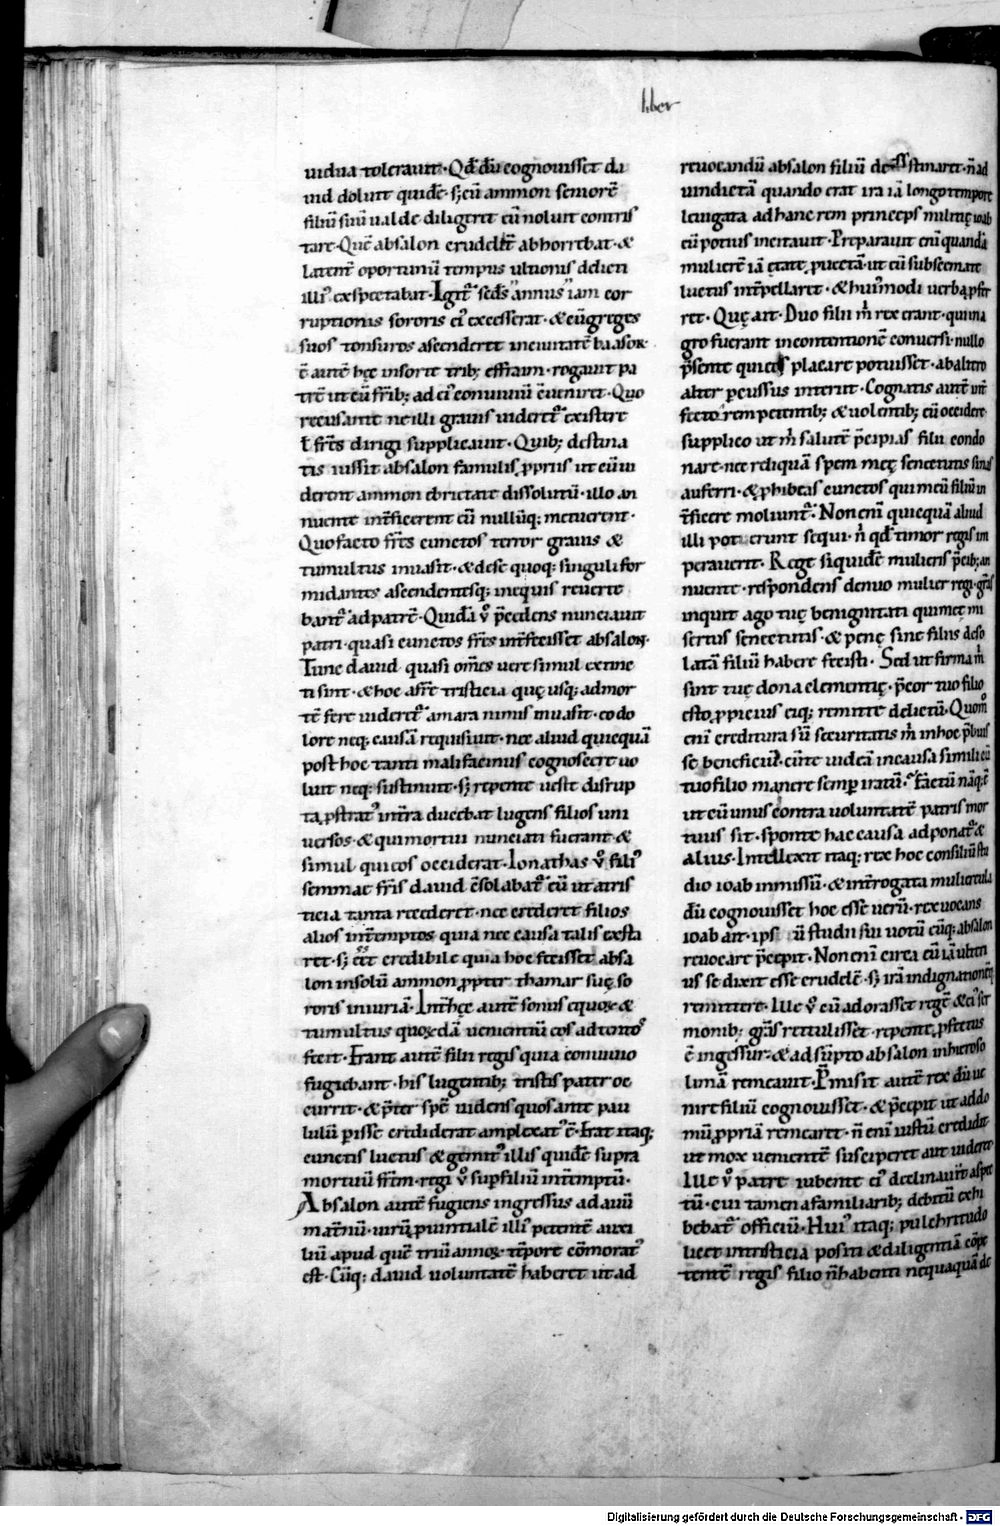 liber
uidua tolerauit· Qd̄ dū cognouisset da
uid doluit quidē· s; cū ammon seniorē
filiū suū ualde diligeret eū noluit contris
tare· Quē absalon crudelit̄ abhorrebat· &
latent̄ oportunū tempus ultionis delicti
illiꝰ exspectabat· Igit᷑ sec̄ds annus iam cor
ruptionis sororis eiꝰ excesserat· & cū greges
suos tonsuros ascenderet in ciuitatē baason·
ē autē hęc in sorte trib; effraim· rogauit pa
trē ut cū fr̄ib; ad eiꝰ conuiuiū ēueniret· Quo
recusante ne illi grauis uideret᷑ existere
ł fr̄es dirigi supplicauit· Quib; destina
tis iussit absalon famulis ꝓpriis ut cū ui
derent ammon ebrietate dissolutū· illo an
nuente int̄ficerent eū nullūq; metuerent·
Quo facto fr̄es cunctos terror grauis &
tumultus inuasit· & de se quoq; singuli for
midantes ascendentesq; in equis reuerte
bant᷑ ad patrē· Quidā ũ p̄cedens nunciauit
patri· quasi cunctos fr̄es int̄fecisset absalon·
Tunc dauid quasi om̄es uere simul extinc
ti sint· & hoc a fr̄e tristicia quę usq; ad mor
tē fere uideret᷑ amara nimis inuasit· eo do
lore neq; causā requisiuit· nec aliud quicquā
post hoc tanti mali facinus cognoscere uo
luit neq; sustinuit· s; repente ueste disrup
ta ꝓstratꝰ in t̄ra ducebat lugens filios uni
uersos· & qui mortui nunciati fuerant· &
simul qui eos occiderat· Ionathas ũ filiꝰ
semmaę fr̄is dauid c̄solabat᷑ eū ut a tris
ticia tanta recederet· nec crederet filios
alios int̄emptos quia nec causa talis exsta
ret· s; cr̄et credibile quia hoc fecisset absa
lon in solū ammon ꝓpter thamar suę so
roris iniuriā· Int̄ hęc autē sonus equoꝝ &
tumultus quoꝝdā uenientiū eos adtentoˢ
fecit· Erant autē filii regis qui a conuiuio
fugiebant· his lugentib; tristis pater oc
currit· & p̄ter spē uidens quos ante pau
lulū ꝑisse crediderat amplexatꝰ ē· Erat itaq;
cunctis luctus & gemitꝰ illis quidē supra
mortuū fr̄em· regi ũ sup filiū int̄emptū·
Absalon autē fugiens ingressus ad auū
mat̄nū· uirū ꝓuintialē illiꝰ petentē auxi
liū apud quē triū annoꝝ· tēpore cōmoratꝰ
est· Cūq; dauid uoluntatē haberet ut ad
reuocandū absalon filiū destinaret· n̄ ad
uindictā quando erat ira iā longo tempore
leuigata ad hanc rem princeps militię ioab
eū potius incitauit· Preparauit eni quandā
mulierē iā ętate ꝓuectā· ut eū sub secreta
luctus int̄pellaret· & huiꝰmodi uerba ꝓfer
ret· Quę ait· Duo filii m̄ rex erant· qui in a
gro fuerant in contentionē conuersi· nullo
p̄sente qui eos placare potuisset· ab altero
alter ꝑcussus interiit· Cognatis autē int̄
fectorem petentib; & uolentib; eū occidere·
supplico ut m̄ salutē p̄cipias filii condo
nare· nec reliquā spem meę senectutis sinas
auferri· & ꝓhibeas cunctos qui meū filiū in
t̄ficere moliunt᷑· Non eni quicquā aliud
illi poterunt sequi· n̄ qd̄ timor regis im
perauerit· Rege siquidē mulieris p̄cib; an
nuente· respondens denuo mulier regi· grās
inquit ago tuę benignitati qui meę mi
sertus senectutis· & penę sine filiis deso
latā filiū habere fecisti· Sed ut firma m̄
sint tuę dona clementię· p̄cor tuo filio
esto ꝓpicius eiq; remitte delictū· Quomᵒ
eni creditura sū securitatis m̄ in hoc p̄buis
se beneficiū· cū te uideā in causa simili cū
tuo filio manere semꝑ iratū· Factū nāq; ē
ut cū unus contra uoluntatē patris mor
tuus sit· sponte hac causa adponat᷑ &
alius· Intellexit itaq; rex hoc consiliū stu
dio ioab inmissū· & int̄rogata muliercula
dū cognouisset hoc esse uerū· rex uocans
ioab ait· ipsū studii sui uotū eūq; absalon
reuocare p̄cepit· Non eni circa eū iā ulteri
us se dixit esse crudelē· s; irā indignationēq;
remittere· Ille ũ cū adorasset regē & eiꝰ ser
monib; grās retulisset· repente ꝓfectus
ē in gessur· & adsūpto absalon in hieroso
limā remeauit· P̄misit autē rex dū ue
nire filiū cognouisset· & p̄cepit ut ad do
mū ꝓpriā remearet· n̄ eni iustū credidit
ut mox uenientē susciperet aut uideret·
Ille ũ patre iubente eiꝰ declinauit aspec
tū· cui tamen a familiarib; debitū exhi
bebat᷑ officiū· Huiꝰ itaq; pulchritudo
licet in tristicia positi & diligentiā cōpe
tentē regis filio n̄ habenti nequaquā de
Digitalisierung gefördert durch die Deutsche Forschungsgemeinschaft - DFG